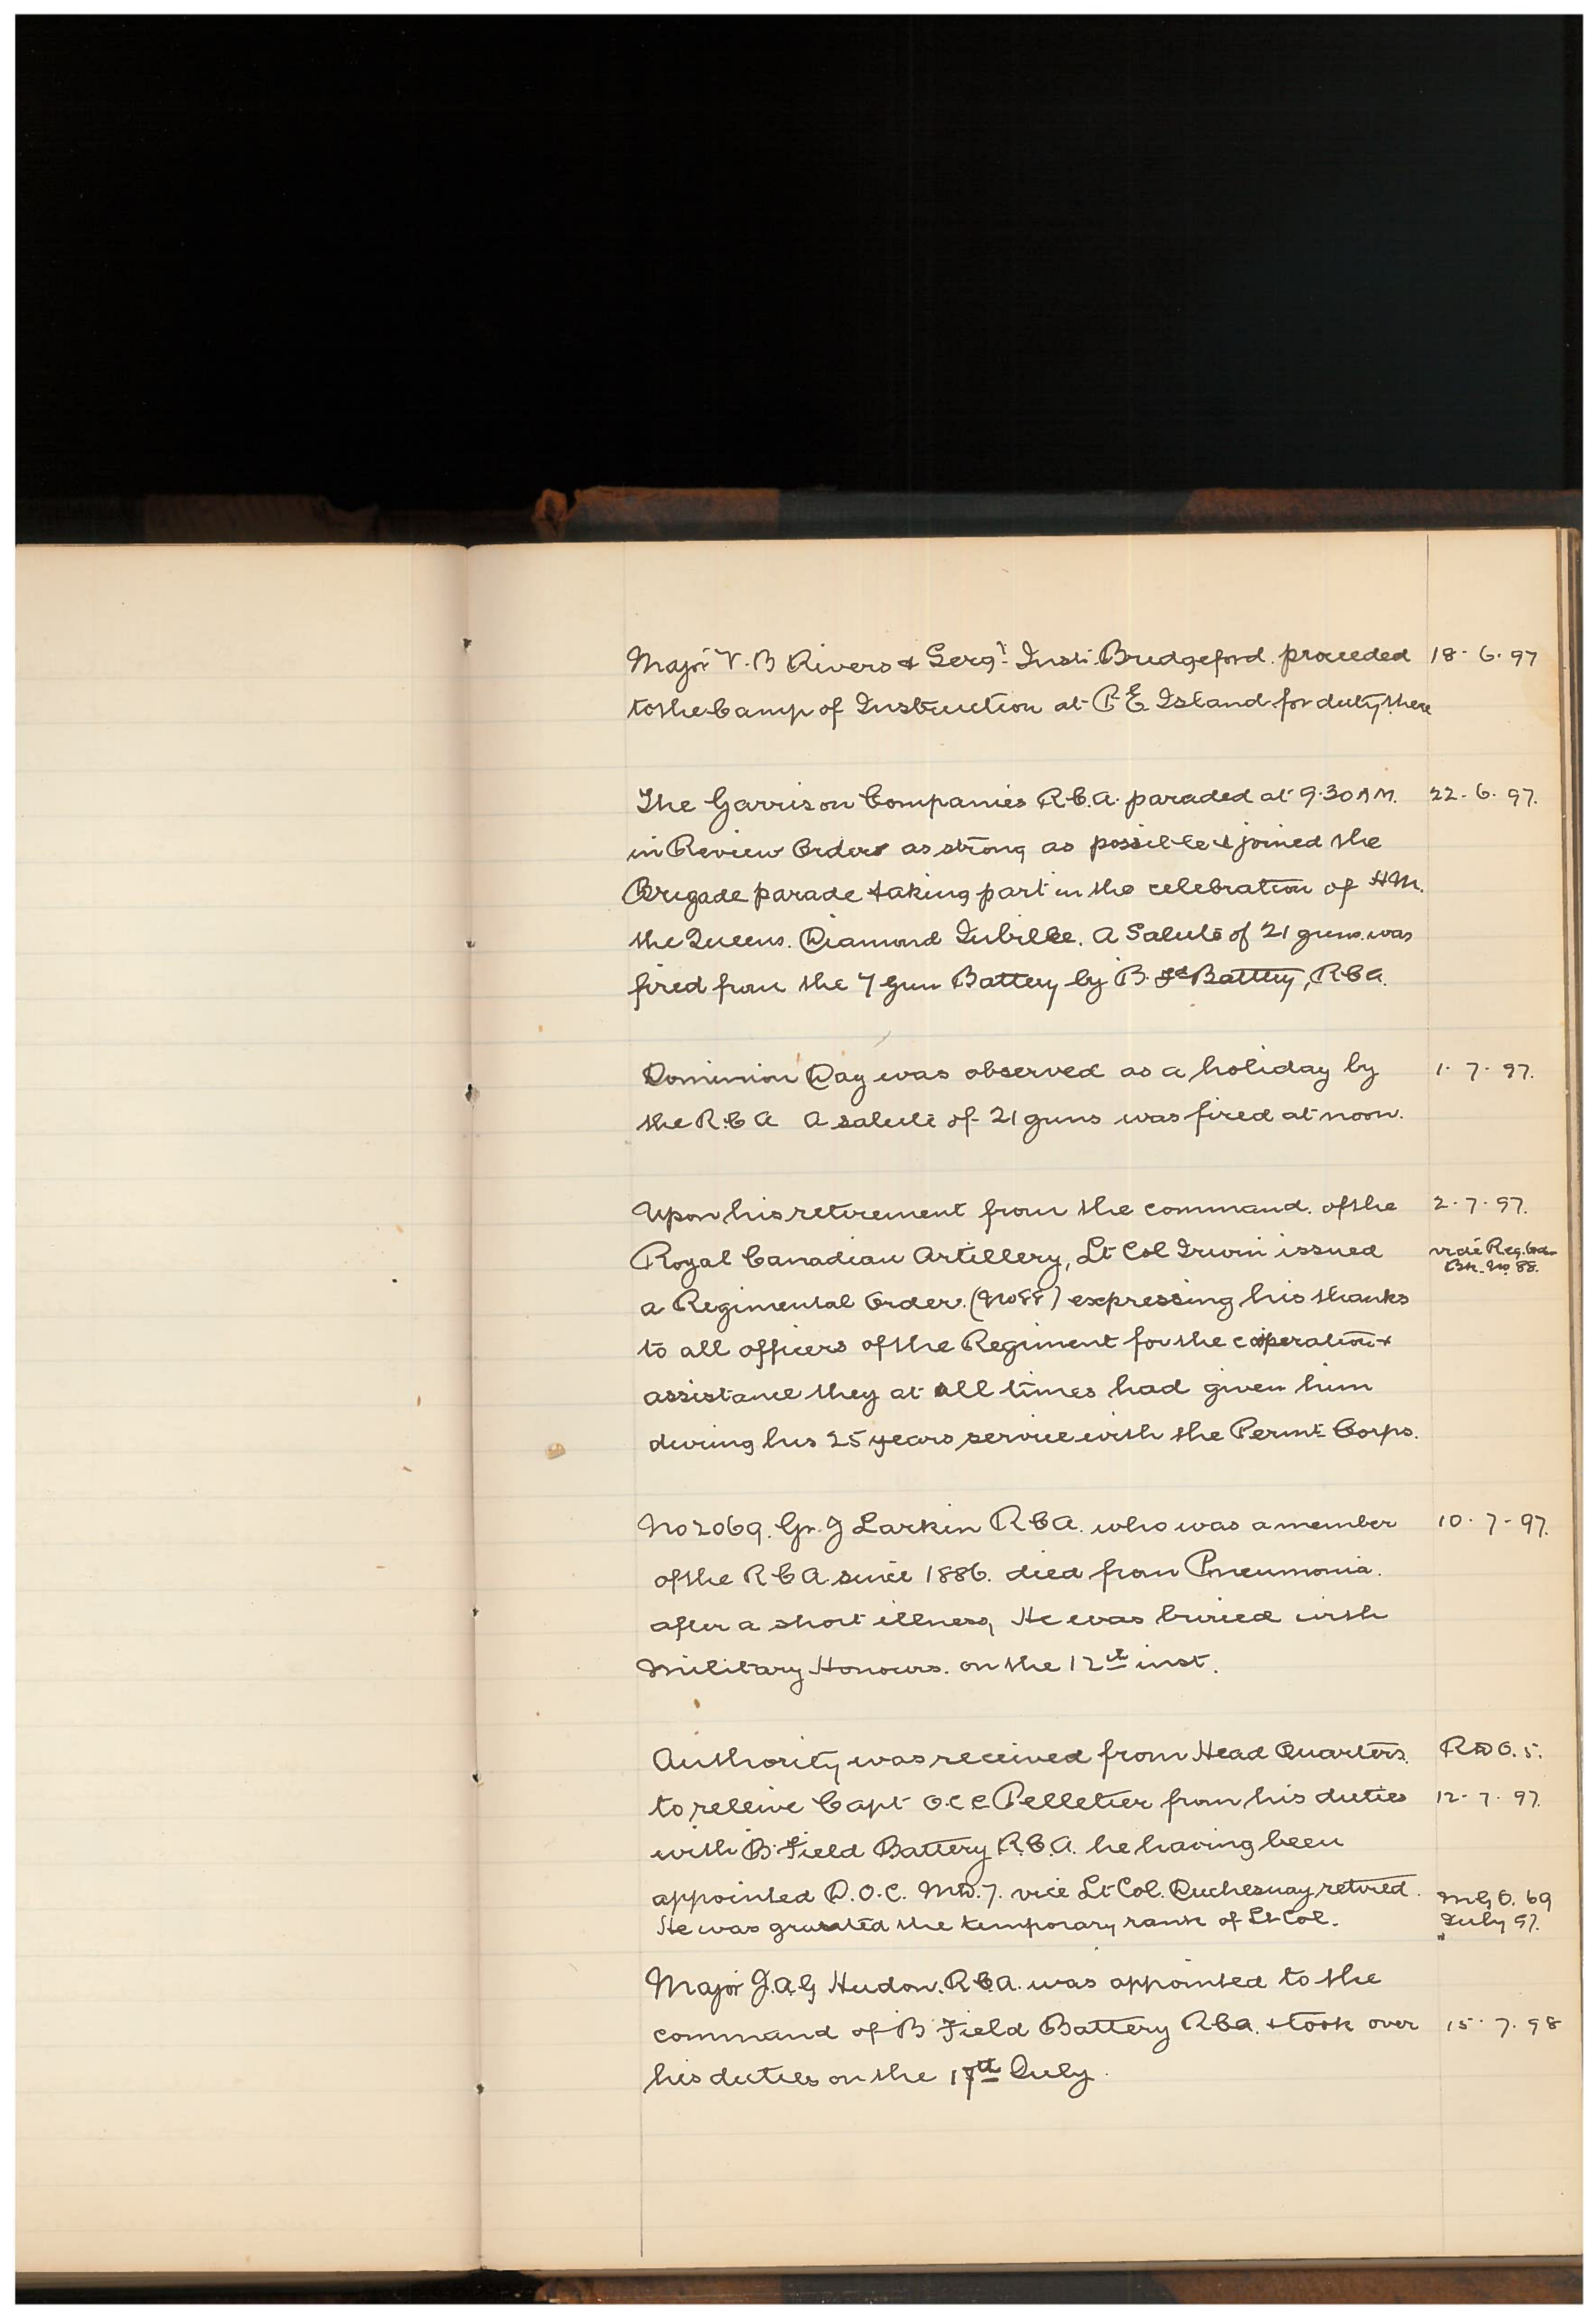 Major V.B Rivers & Sergt. Inst. Bridgeford. proceeded 18-6-97
to the Camp of Instruction at P E Island for duty there
The Garrison Companies R.C.A. paraded at 9.30 A.M. 22-6-97.
in Review Order as strong as possible & joined the
Brigade parade taking part in the celebration of H.M.
the Queens. Diamond Jubilee. A Salute of 21 guns. was
fired from the 7 Gun Battery by B. Fd Battery, R C A.
Dominion Day was observed as a holiday by 1-7-97.
the R.C A A salute of 21 guns was fired at noon.
Upon his retirement from the command. of the 2-7-97.
Royal Canadian Artillery, Lt Col Irwin issued vide Reg. Ord
a Regimental Order. (No 88) expressing his thanks Bk. No 88.
to all officers of the Regiment for the cooperation &
assistance they at all times had given him
during his 25 years service with the Permt. Corps.
No 2069. Gr. J Larkin R C A. who was a member 10-7-97.
of the R C A. since 1886. died from Pneumonia.
after a short illness, He was buried with
Military Honours. on the 12th inst.
Authority was received from Head Quarters. R D O. 5.
to relieve Capt O.C C Pelletier from his duties 12-7-97.
with B. Field Battery R.C.A. he having been
appointed D.O.C. M.D.7. vice Lt Col. Duchesnay retired. M G O. 69
He was granted the temporary rank of Lt Col. July 97.
Major J.A.G Hudon. R.C.A. was appointed to the
command of B Field Battery R C A. & took over 15-7.98
his duties on the 17th July.